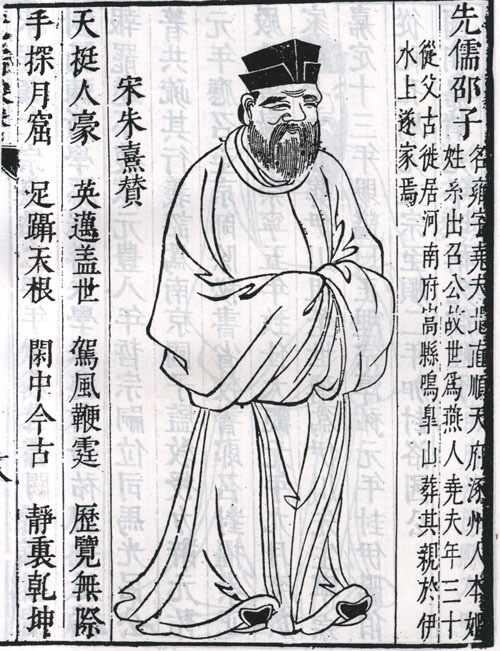 先儒邵子
名雍字堯夫 直順天府涿州人本姬
姓系出召公故世爲燕人堯夫年三十
從父古徙居河南府嵩縣鳴皐山葬其親於伊
水上遂家焉
宋朱熹贊
天挺人豪 英邁盖世 駕風鞭霆 歷覽無際
手探月窟 足躡天根 閑中今古 靜裏乾坤